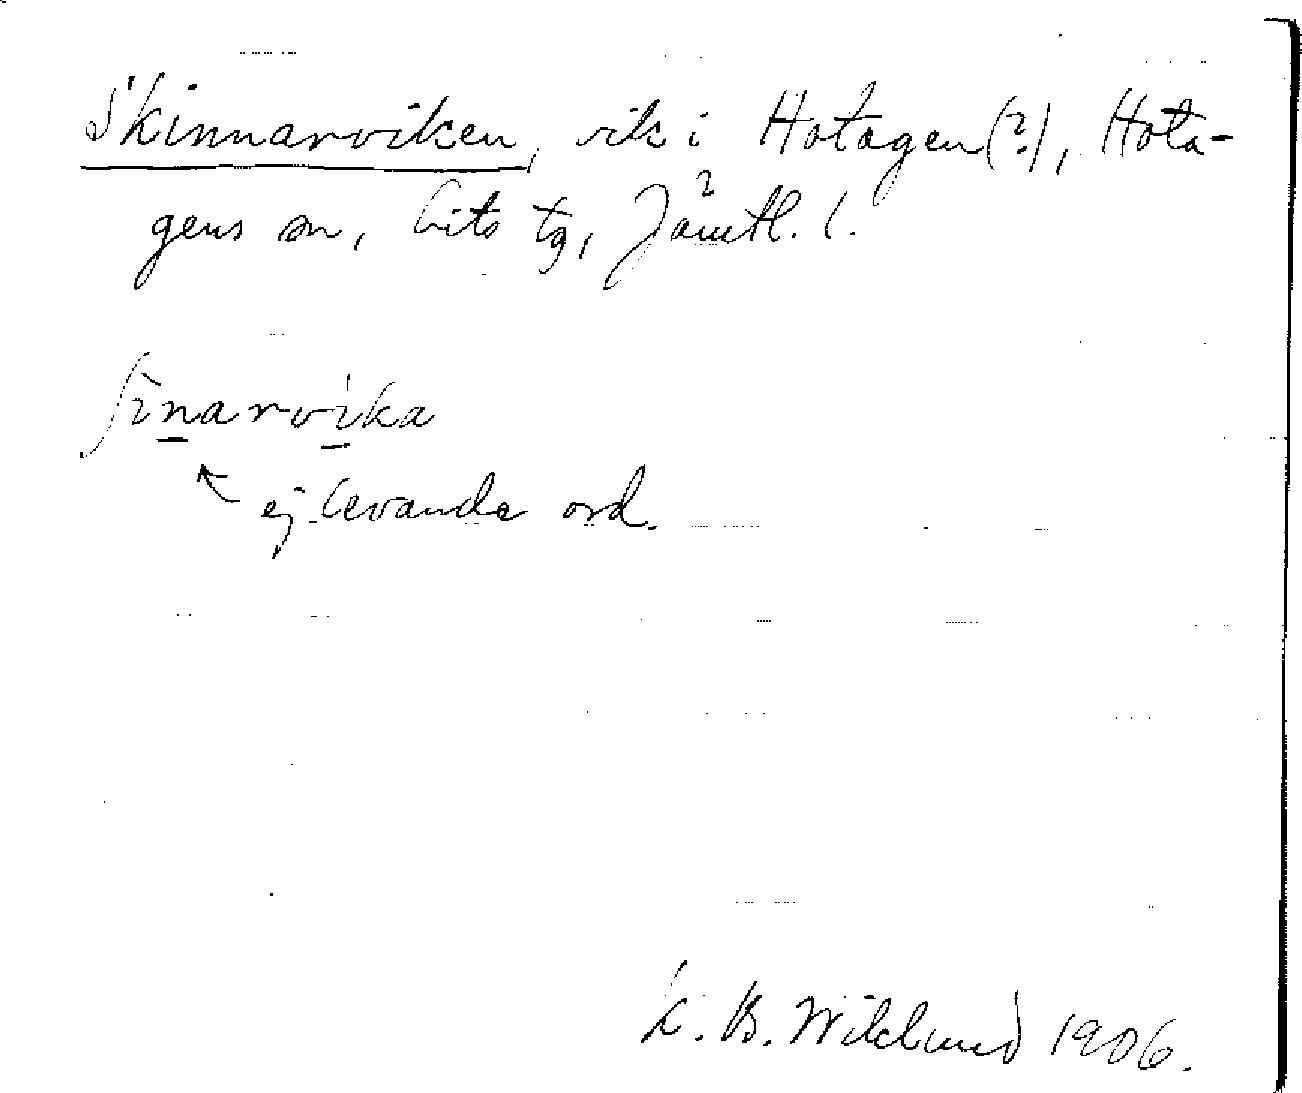 Skinnarviken, vik i Hotagen(?), Hota-
gens sn, Lits tg, Jämtl. l.
ʃìnarvíka
ej levande ord.
K. B. Wiklund 1906.